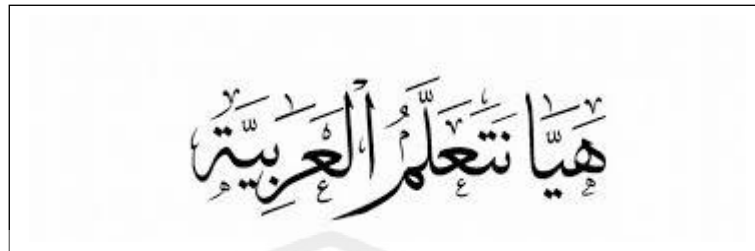 هَيَّا نَتَعَلَّمُ الْعَرَبِيَّة